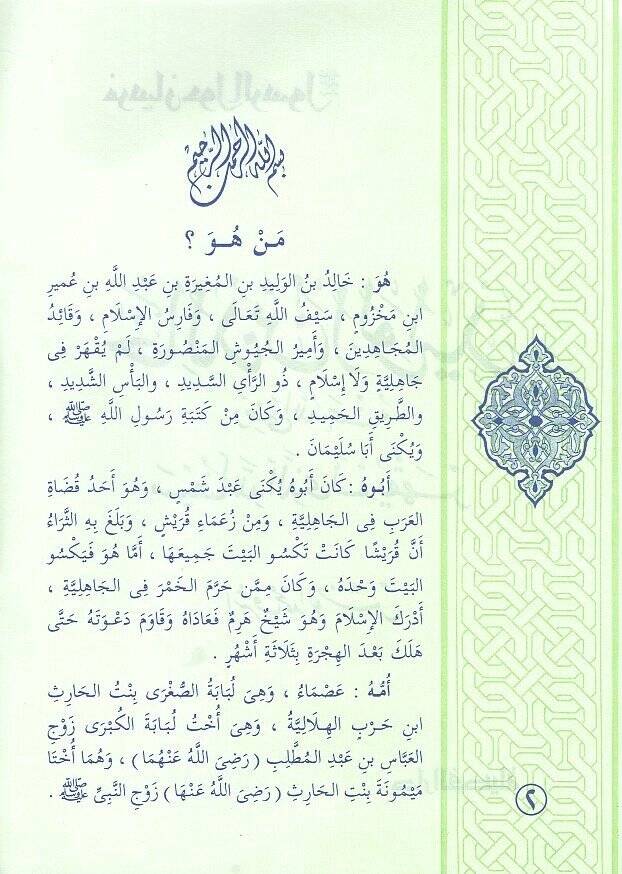 بسم الله الرحمن الرحيم
مَنْ هُوَ ؟
هُوَ : خَالِدُ بنُ الوَلِيدِ بنِ المُغِيرَةِ بنِ عَبْدِ اللَّهِ بنِ عُميرِ
ابنِ مَخْزُومٍ ، سَيْفُ اللَّهِ تَعَالَى ، وَفَارِسُ الإِسْلَامِ ، وَقَائِدُ
المُجَاهِدِينَ ، وَأَمِيرُ الجُيُوشِ المَنْصُورَةِ ، لَمْ يُقْهَرْ فِى
جَاهِلِيَّةٍ وَلَا إِسْلَامٍ ، ذُو الرَّأْىِ السَّدِيدِ ، والبَأْسِ الشَّدِيدِ ،
والطَّرِيقِ الحَمِيدِ ، وَكَانَ مِنْ كَتَبَةِ رَسُولِ اللَّهِ ﷺ ،
وَيُكْنَى أَبَا سُلَيْمَانَ .
أَبُوهُ : كَانَ أَبُوهُ يُكْنَى عَبْدَ شَمْسٍ ، وَهُوَ أَحَدُ قُضَاةِ
العَرَبِ فِى الجَاهِلِيَّةِ ، وَمِنْ زُعَمَاءِ قُرَيْشٍ ، وَبَلَغَ بِهِ الثَّرَاءُ
أَنَّ قُرَيْشًا كَانَتْ تَكْسُو البَيْتَ جَمِيعَهَا ، أَمَّا هُوَ فَيَكْسُو
البَيْتَ وَحْدَهُ ، وَكَانَ مِمَّن حَرَّمَ الخَمْرَ فِى الجَاهِلِيَّةِ ،
أَدْرَكَ الإِسْلَامَ وَهُوَ شَيْخٌ هَرِمٌ فَعَادَاهُ وَقَاوَمَ دَعْوَتَهُ حَتَّى
هَلَكَ بَعْدَ الهِجْرَةِ بِثَلَاثَةِ أَشْهُرٍ .
أُمُّهُ : عَصْمَاءُ ، وَهِىَ لُبَابَةُ الصُّغْرَى بِنْتُ الحَارِثِ
ابنِ حَرْبٍ الهِلَالِيَّةُ ، وَهِىَ أُخْتُ لُبَابَةَ الكُبْرَى زَوْجِ
العَبَّاسِ بنِ عَبْدِ المُطَّلِبِ ( رَضِىَ اللَّهُ عَنْهُمَا ) ، وَهُمَا أُخْتَا
مَيْمُونَةَ بِنْتِ الحَارِثِ ( رَضِىَ اللَّهُ عَنْهَا ) زَوْجِ النَّبِىِّ ﷺ .
٢